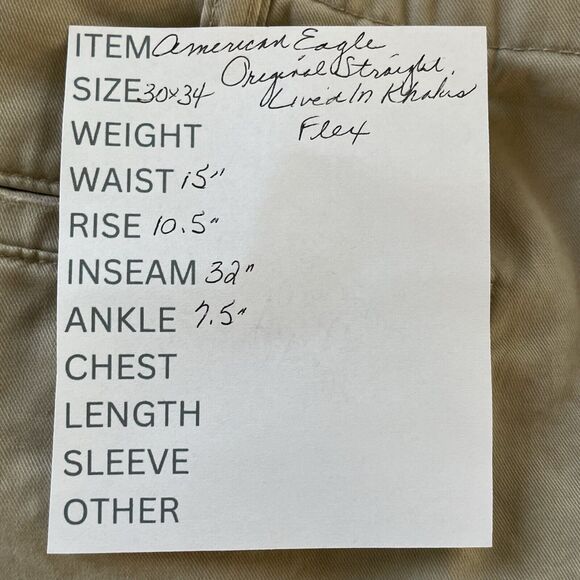 ITEM American Eagle
Original Straight,
SIZE 30x34 Lived In Khakis
WEIGHT Flex
WAIST 15"
RISE 10.5"
INSEAM 32"
ANKLE 7.5"
CHEST
LENGTH
SLEEVE
OTHER